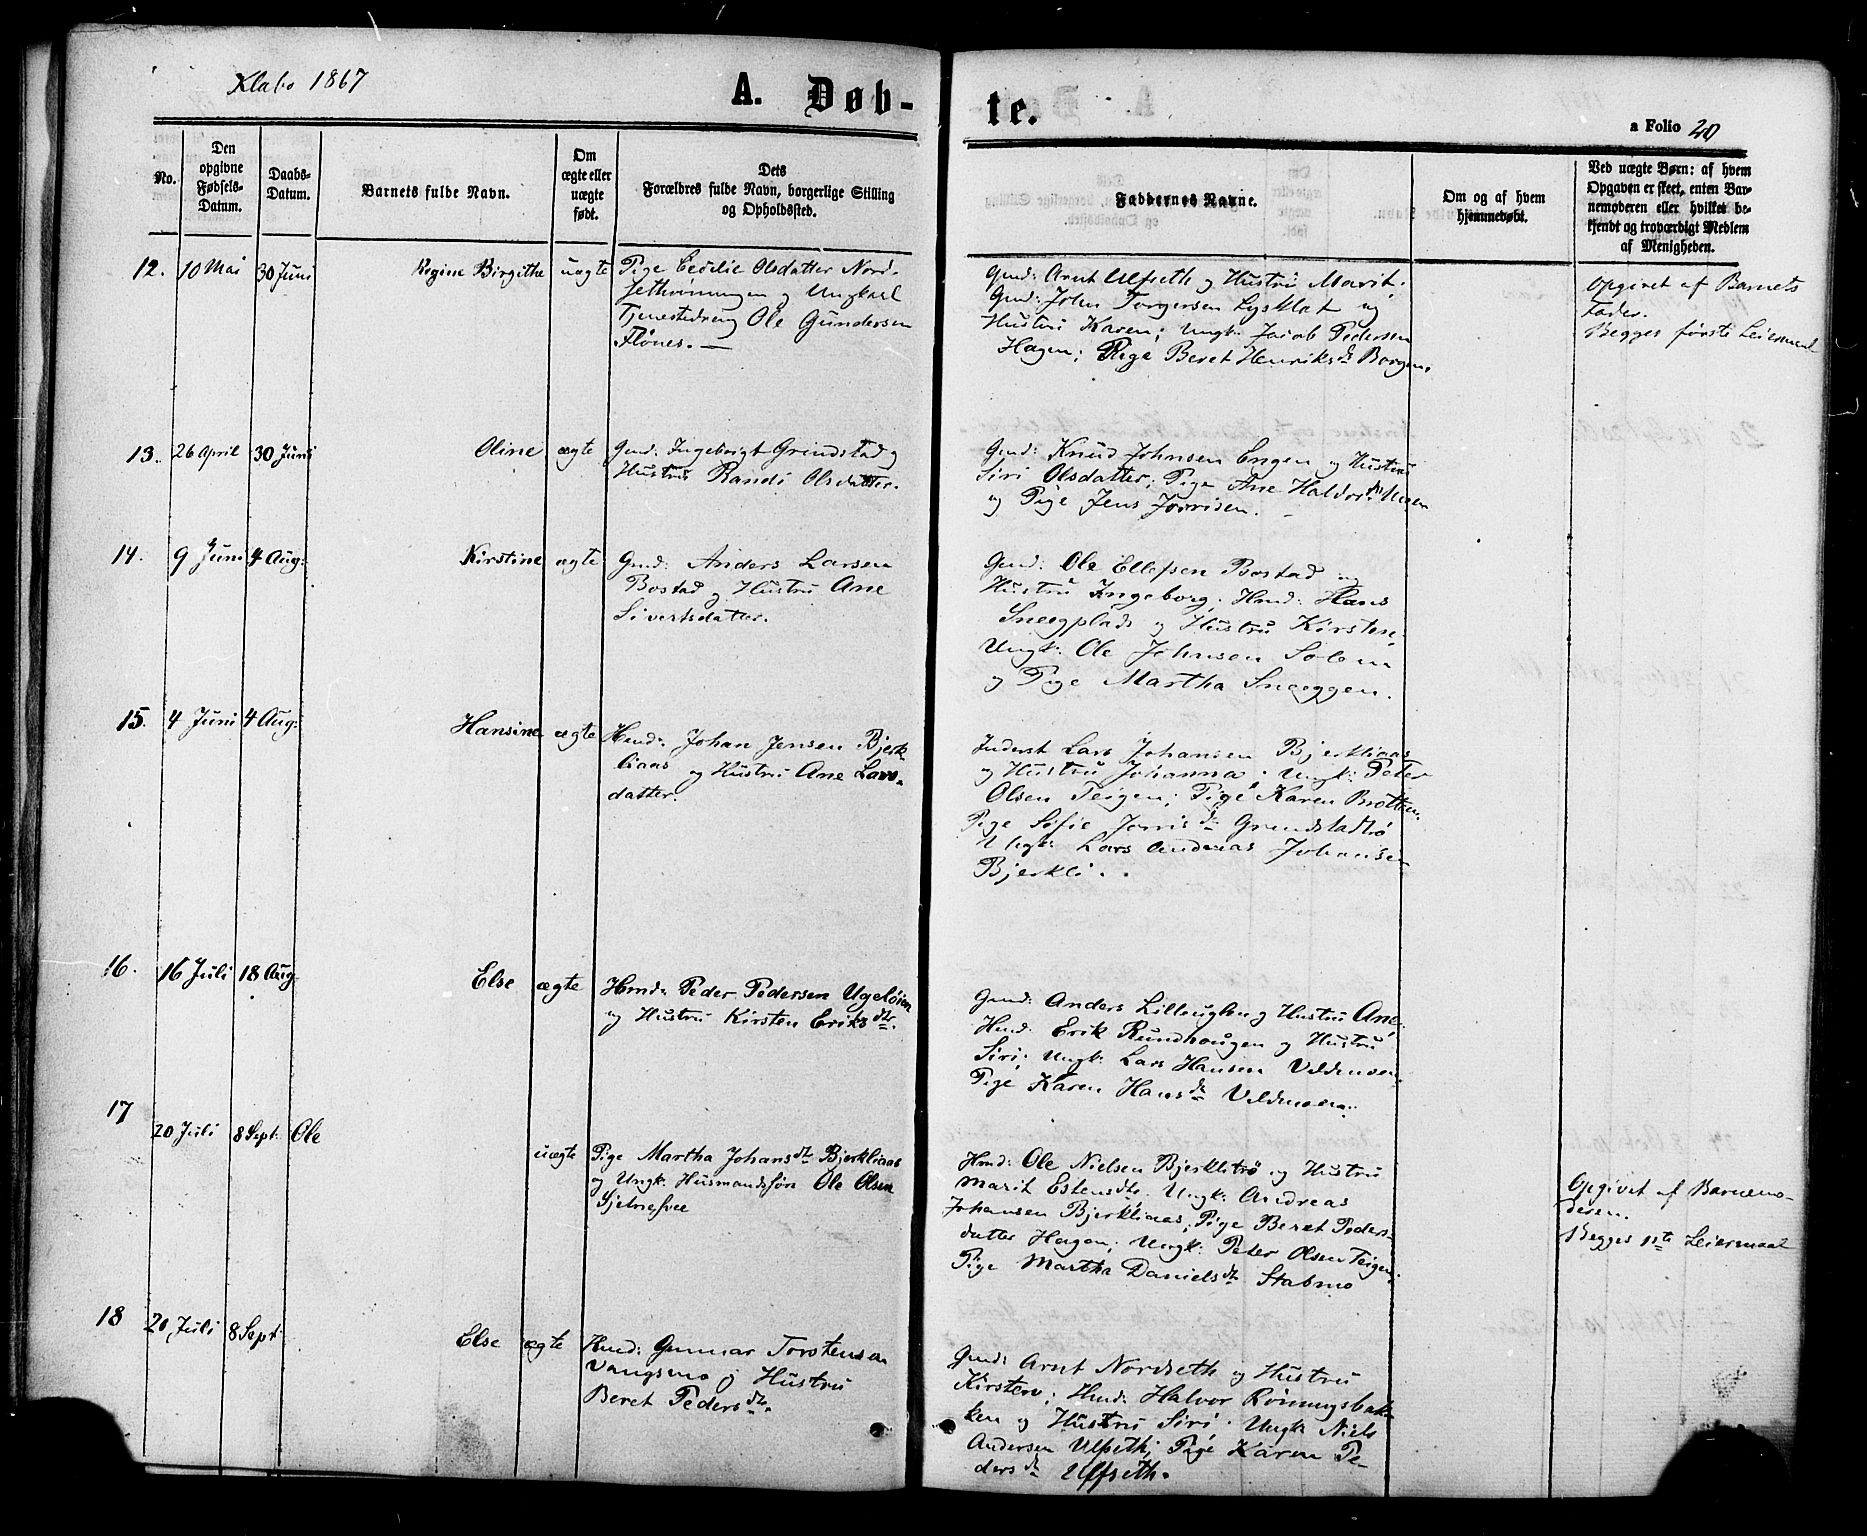 Klæbo 1867
A. Døb-
te.
a Folio 20
No.
Den
opgivne
Fødsels-
Datum.
Daabs-
Datum.
Barnets fulde Navn.
Om
ægte eller
uægte
født.
Dets
Forældres fulde Navn, borgerlige Stilling
og Opholdssted.
Faddernes Navne.
Om og af hvem
hjemmedøbt.
Ved uægte Børn: af hvem
Opgaven er skeet, enten Bar-
nemoderen eller hvilket be-
kjendt og troværdigt Medlem
af Menigheden.
12. 10 Mai 30 Juni Regine Birgithe uægte
Pige Cecilie Olsdatter Nord-
og Ungkarl
Tjenestedreng Ole Gundersen
Flönes. —
Gmd: Arnt Ulfseth og Hustru Marit.
Gmd: John Torgersen Lysklæt og
Hustru Karen; Ungk: Jacob Pedersen
Hagen; Pige Beret Henriksdt. Borgen.
Opgivet af Barnets
Fader.
Begges første Leiermaal
13. 26 April 30 Juni Oline ægte
Gmd: Ingebrigt Grindstad og
Hustru Randi Olsdatter.
Gmd: Knud Johnsen Engen og Hustru
Siri Olsdatter; Pige Ane Haldorsdt. Moen
og Pige Jens
14. 9 Juni 4 Aug: Kirstine ægte
Gmd: Anders Larsen
Bostad og Hustru Ane
Sivertsdatter.
Gmd: Ole Ellefsen Bostad og
Hustru Ingeborg; Hmd: Hans
Sneegplads og Hustru Kirsten;
Ungk: Ole Johnsen Solem
og Pige Martha Sneeggen.
15. 4 Juni 4 Aug: Hansine ægte
Hmd: Johan Jensen Bjerk-
liaas og Hustru Ane Lars-
datter.
Inderst Lars Johansen Bjerkliaas
og Hustru Johanna; Ungk: Peter
Olsen Teigen; Pige Karen Brotten.
Pige Sofie Jonisdt Grendstadtrö
Ungk: Lars Andreas Johansen
Bjerkli..
16. 16 Juli 18 Aug. Else ægte
Hmd: Peder Pedersen Ugelöien
og Hustru Kirsten Eriksdtr.
Gmd: Anders Lilleuglen og Hustru Ane;
Hmd: Erik Rundhougen og Hustru
Siri; Ungk: Lars Hansen Veldemoen.
Pige Karen Hansdt Veldmoen.
17
20 Juli 8 Sept: Ole
uægte Pige Martha Johansdtr Bjerkliaas
og Ungk: Husmandssön Ole Olsen
Hmd: Ole Nielsen Bjerklitrö og Hustru
Marit Estensdtr. Ungk: Andreas
Johansen Bjerkliaas; Pige Beret Peders-
datter Hagen; Ungk: Peter Olsen Teigen;
Pige Martha Danielsdt. Stabmo
Opgivet af Barnemo-
deren.
Begges 1ste Leiermaal
18 20 Juli 8 Sept: Else ægte
Hmd: Gunnar Torstensen
Vangsmo og Hustru
Beret Pedersdtr.
Gmd: Arnt Nordseth og Hustru
Kirsten; Hmd: Halvor Rönningsbak-
ken og Hustru Siri; Ungk: Niels
Andersen Ulfseth; Pige Karen Pe-
dersdt Ulfseth.